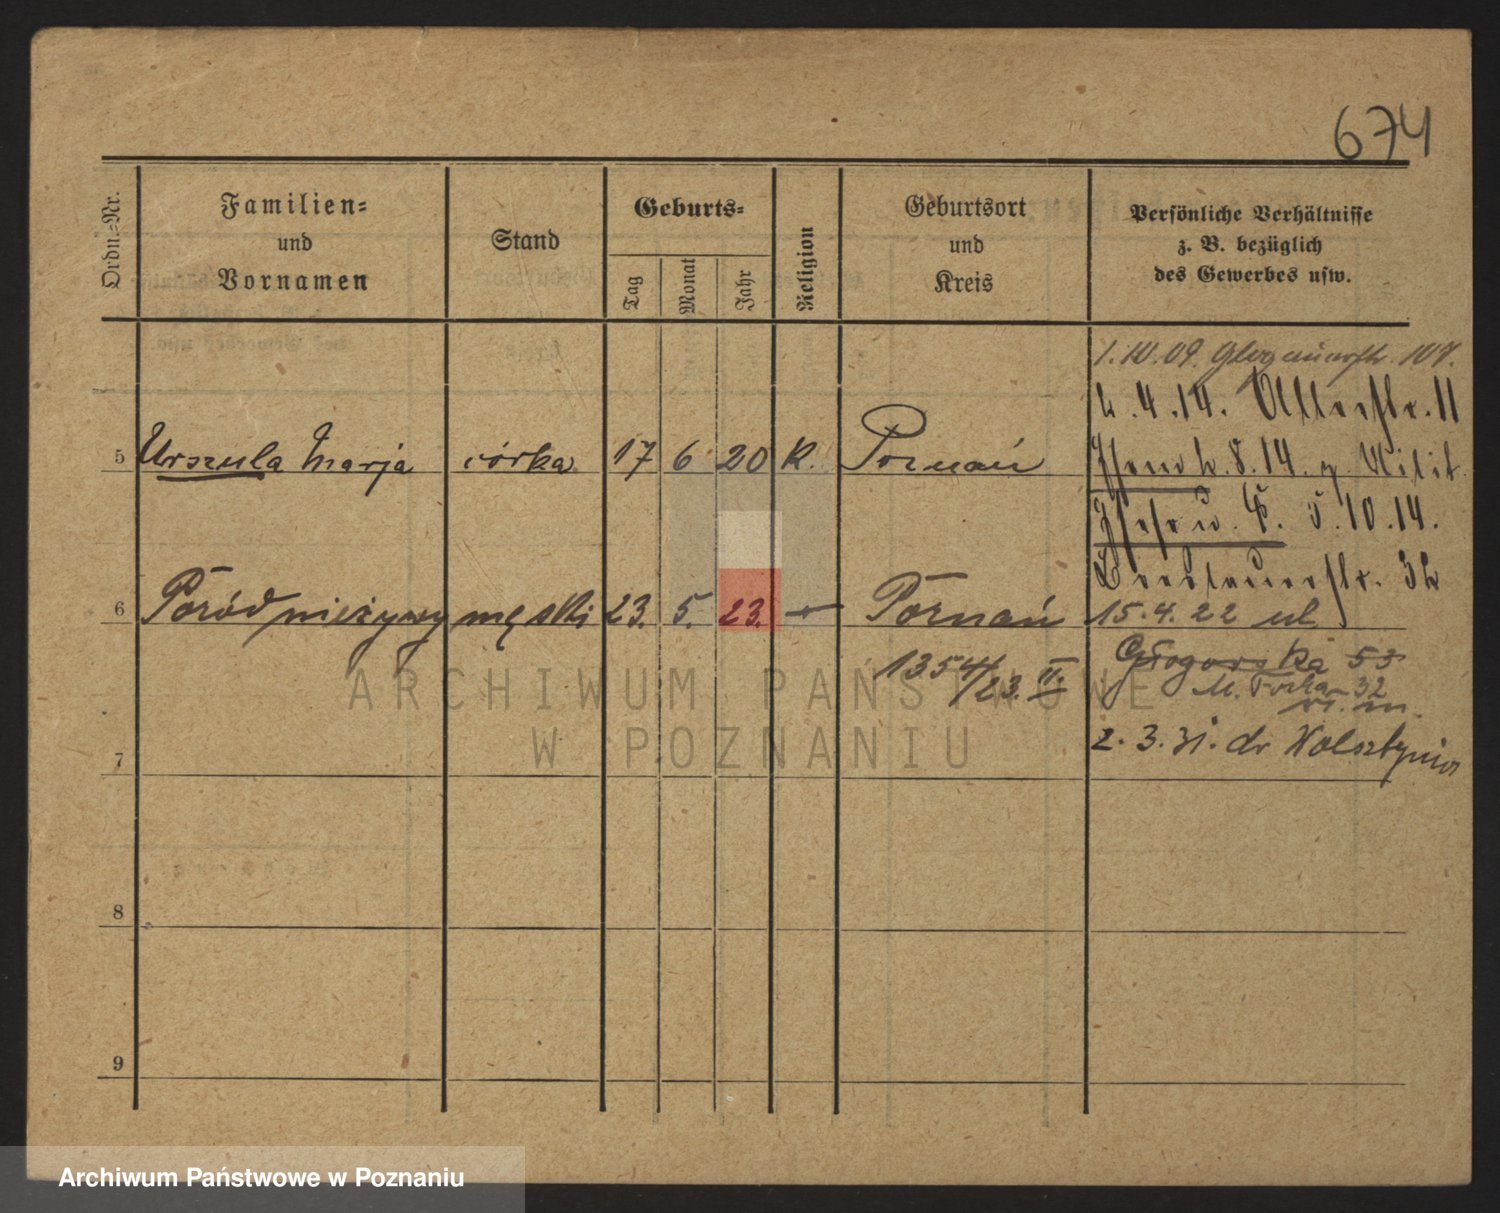 674
Ordn.-Nr.
Familien-
und
Vornamen
Stand
Geburts-
Tag
Monat
Jahr
Religion
Geburtsort
und
Kreis
Persönliche Verhältnisse
z. B. bezüglich
des Gewerbes usw.
1.10.09. Glogauerstr. 107.
2.4.14.
5 Urszula Marja córka 17 6 20 K. Poznań
8.14. Milit
5.10.14.
32
6 Poród nieżywy męski 23. 5. 23. – Poznań
15.4.22 ul.
1354/23. II.
Głogowska 53
32
7
2.3.31. dr
8
9
ARCHIWUM PAŃSTWOWE
W POZNANIU
Archiwum Państwowe w Poznaniu